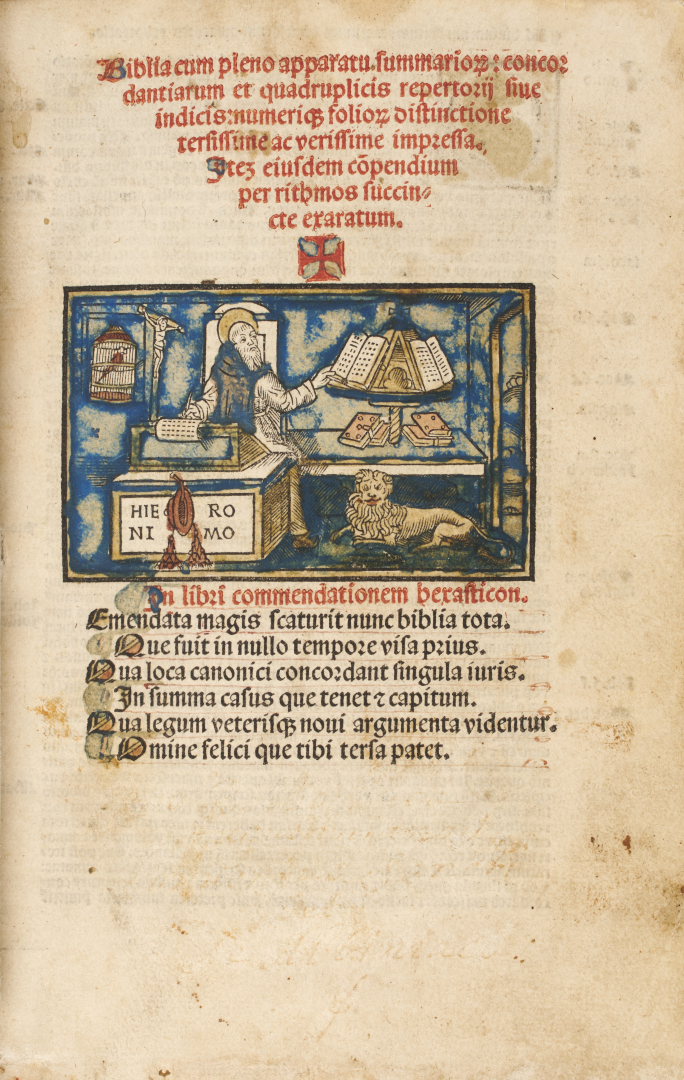 Biblia cum pleno apparatu summarioꝝ: concor
dantiarum et quadruplicis repertorij siue
indicis: numeriqꝫ folioꝝ distinctione
tersissime ac verissime impressa.
Iteꝫ eiusdem cōpendium
per rithmos succin⸗
cte exaratum.
HIE RO
NI MO
In libri commendationem hexasticon.
Emendata magis scaturit nunc biblia tota.
Que fuit in nullo tempore visa prius.
Qua loca canonici concordant singula iuris.
In summa casus que tenet ⁊ capitum.
Qua legum veterisqꝫ noui argumenta videntur.
Omine felici que tibi tersa patet.